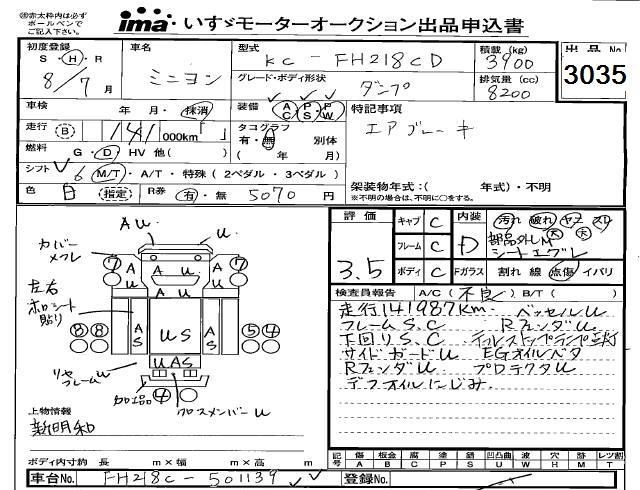 ※赤太枠内は必ず
ボールペンで
ご記入下さい。
ima いすゞモーターオークション出品申込書
初度登録
S・H・R
8/7月
車名
ミニヨン
型式
KC-FH218CD
グレード・ボディ形状
ダンプ
積載 (kg)
3900
排気量 (cc)
8200
出品No
3035
車検
年 月・抹消
装備
AC PS PW
特記事項
エアブレーキ
走行
B
141
000km「 」
タコグラフ
有・無 別体
( 年 月)
燃料
G・D・HV 他( )
シフト
6 M/T・A/T・特殊(2ペダル・3ペダル)
架装物年式:( 年式)・不明
※不明の場合は、不明に○をする。
色
白
指定
R券
有・無
5070円
評価
3.5
キャブ C
フレーム C
ボディ C
内装
D
汚れ 破れ ヤニ スリ
大 大
部品外しM
シートエグレ
Fガラス
割れ 線 点傷 イバリ
検査員報告
A/C(不良) B/T( )
走行141987km. ベッセルU
フレームS.C RフェンダU
下回りS.C テールストップランプ玉切
サイドガードU EGオイルベタ
RフェンダU プロテクタU
デフオイルにじみ.
AU
U
カバー
メクレ
7
AU
U
AU
7
左右
ホロシート
貼り
8 8
AS
US
AS
5 4
UAS
リヤ
フレームU
加工品
4
クロスメンバーU
上物情報
新明和
ボディ内寸約 長 m×幅 m×高 m
記号
傷 A
板金 B
腐 C
塗 P
錆 S
凹凸曲 U
波 W
穴 H
跡 M
レツ割 T
車台No.
FH218C-501139
登録No.